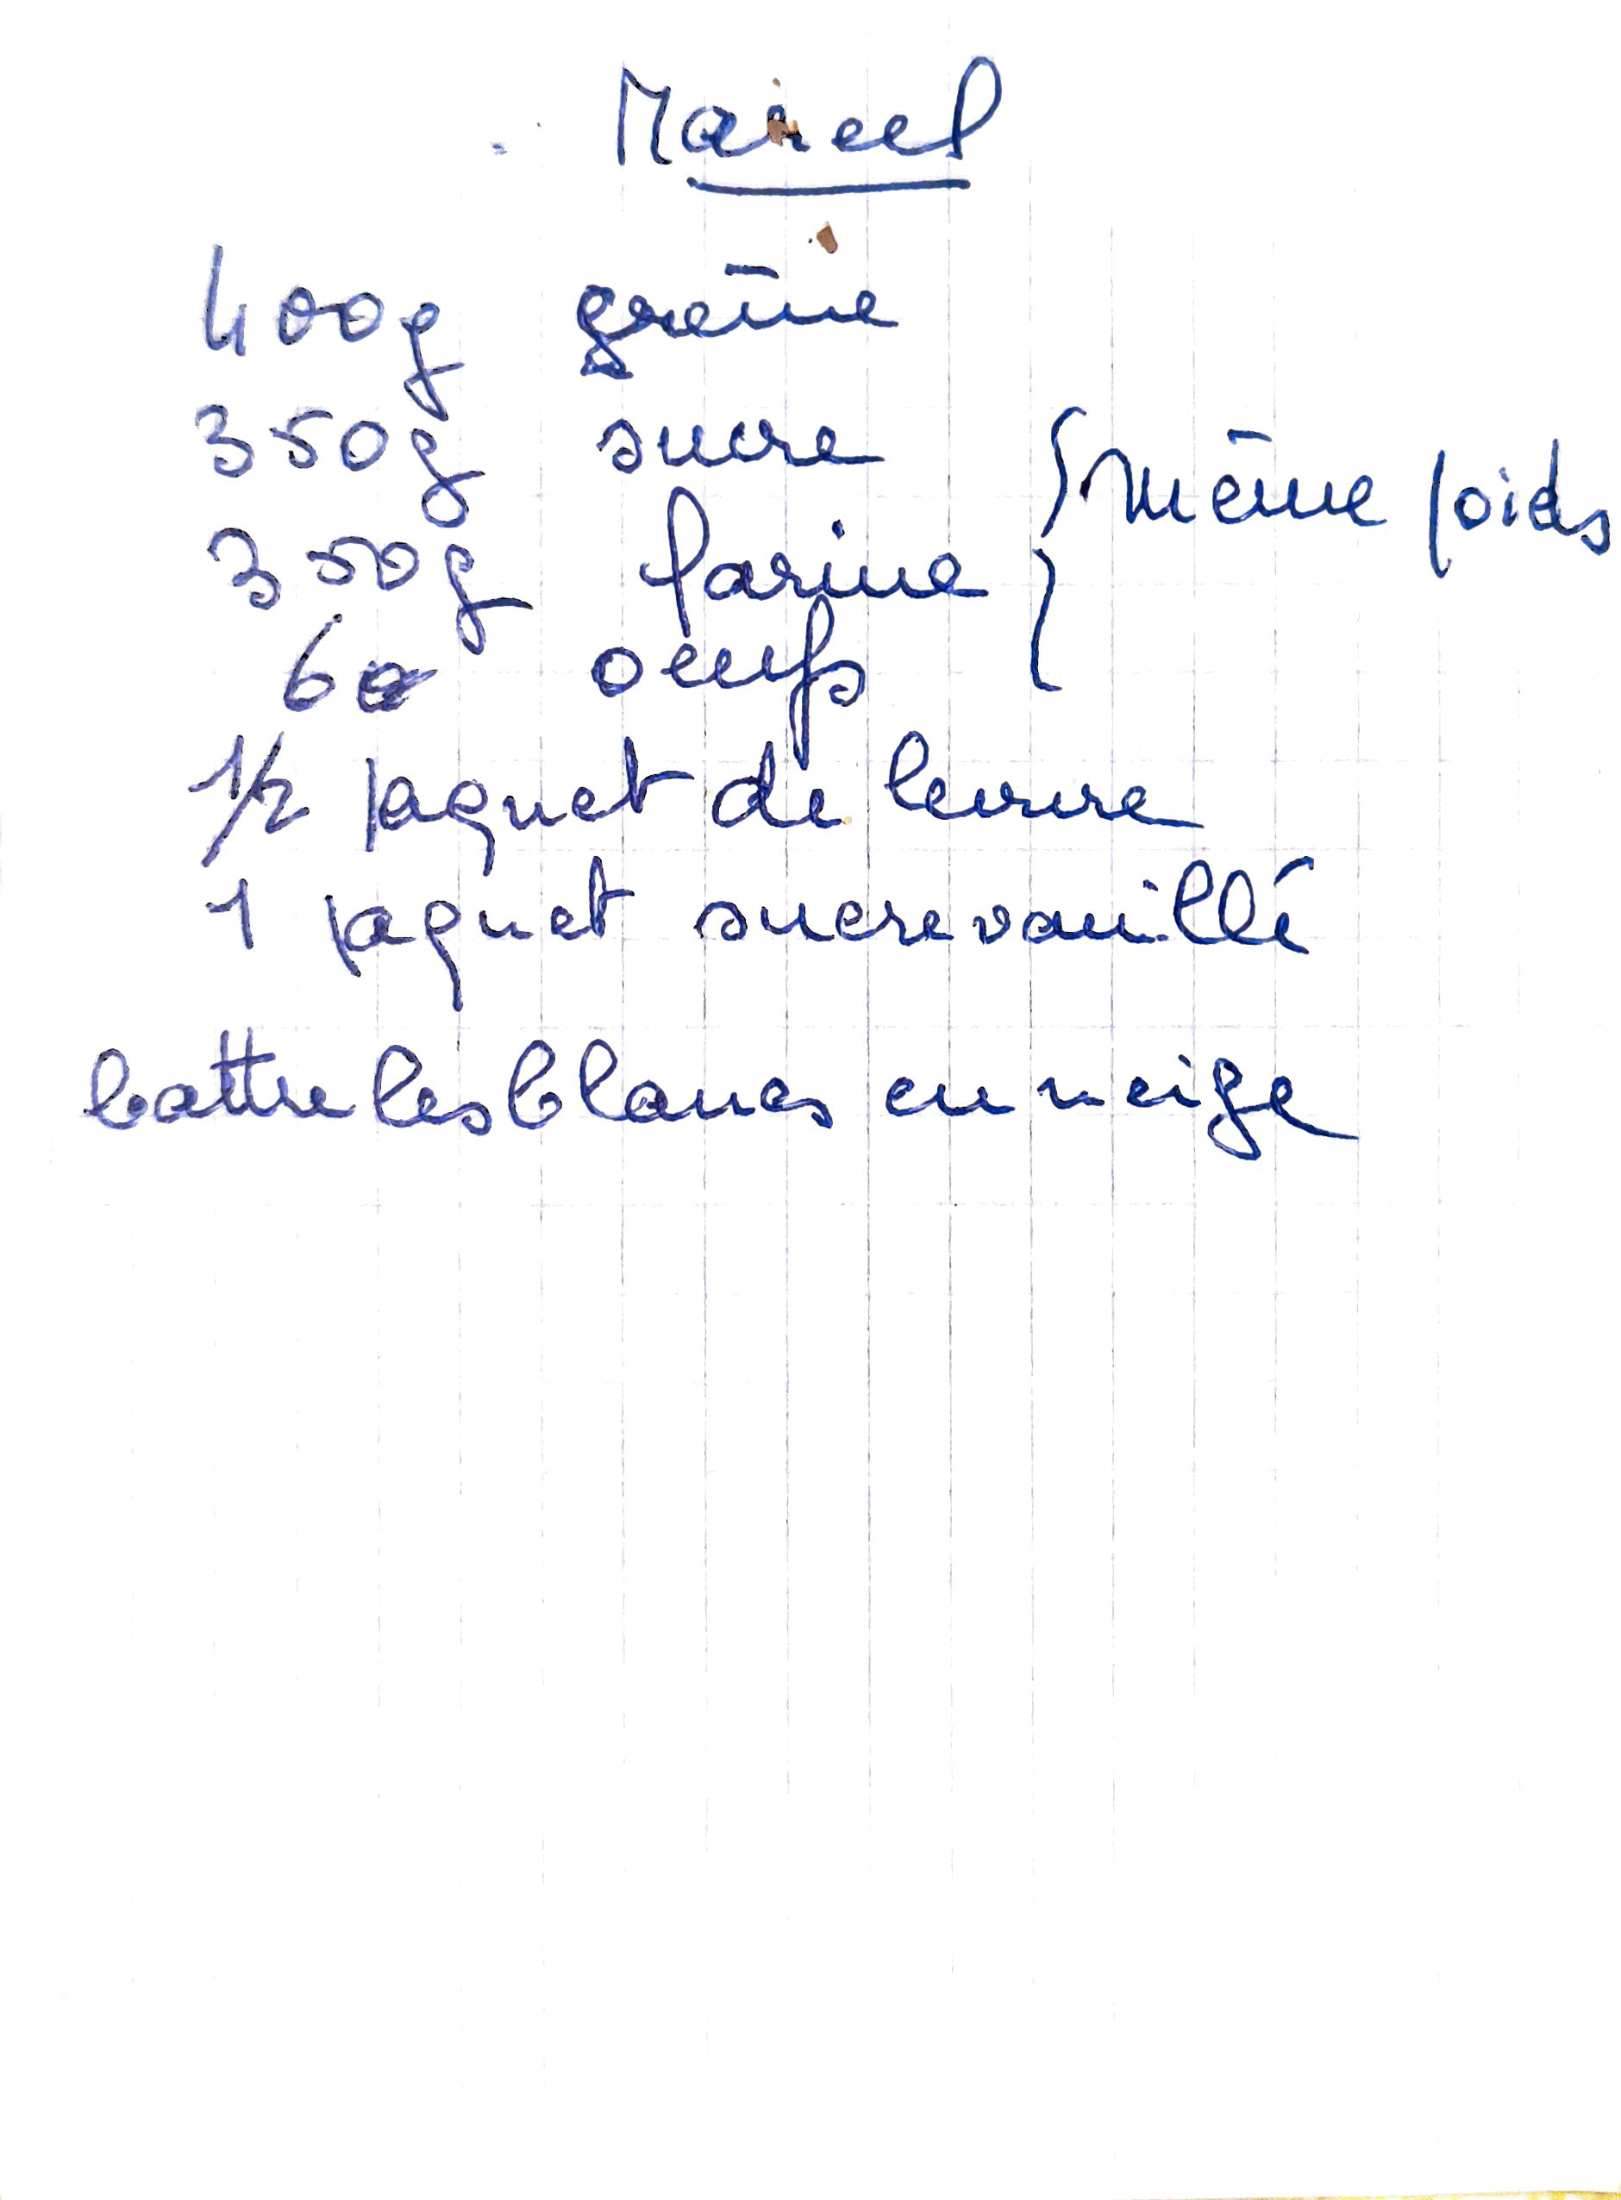 Marcel
400g crème
350g sucre
350g farine } même poids
6 oeufs
1/2 paquet de levure
1 paquet sucre vanillé
battre les blancs en neige